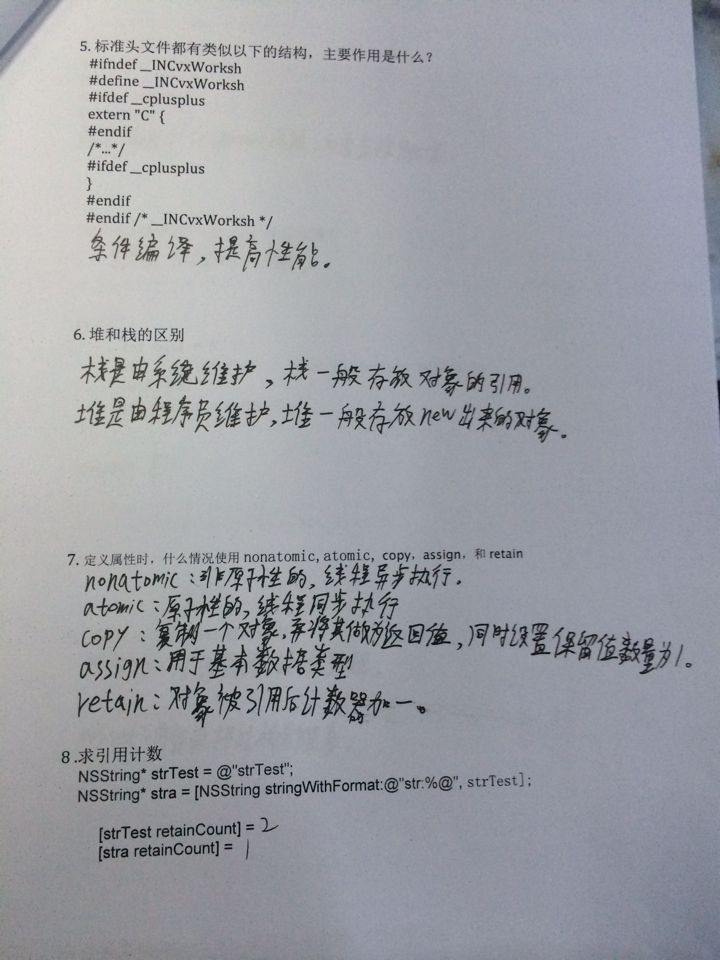 5. 标准头文件都有类似以下的结构，主要作用是什么？
#ifndef __INCvxWorksh
#define __INCvxWorksh
#ifdef __cplusplus
extern "C" {
#endif
/*...*/
#ifdef __cplusplus
}
#endif
#endif /* __INCvxWorksh */
条件编译，提高性能。
6. 堆和栈的区别
栈是由系统维护，栈一般存放对象的引用。
堆是由程序员维护，堆一般存放new出来的对象。
7. 定义属性时，什么情况使用 nonatomic, atomic, copy，assign，和 retain
nonatomic：非原子性的，线程异步执行。
atomic：原子性的，线程同步执行
copy：复制一个对象，并将其做为返回值，同时设置保留值数量为1。
assign：用于基本数据类型
retain：对象被引用后计数器加一。
8.求引用计数
NSString* strTest = @"strTest";
NSString* stra = [NSString stringWithFormat:@"str:%@", strTest];
[strTest retainCount] = 2
[stra retainCount] = 1